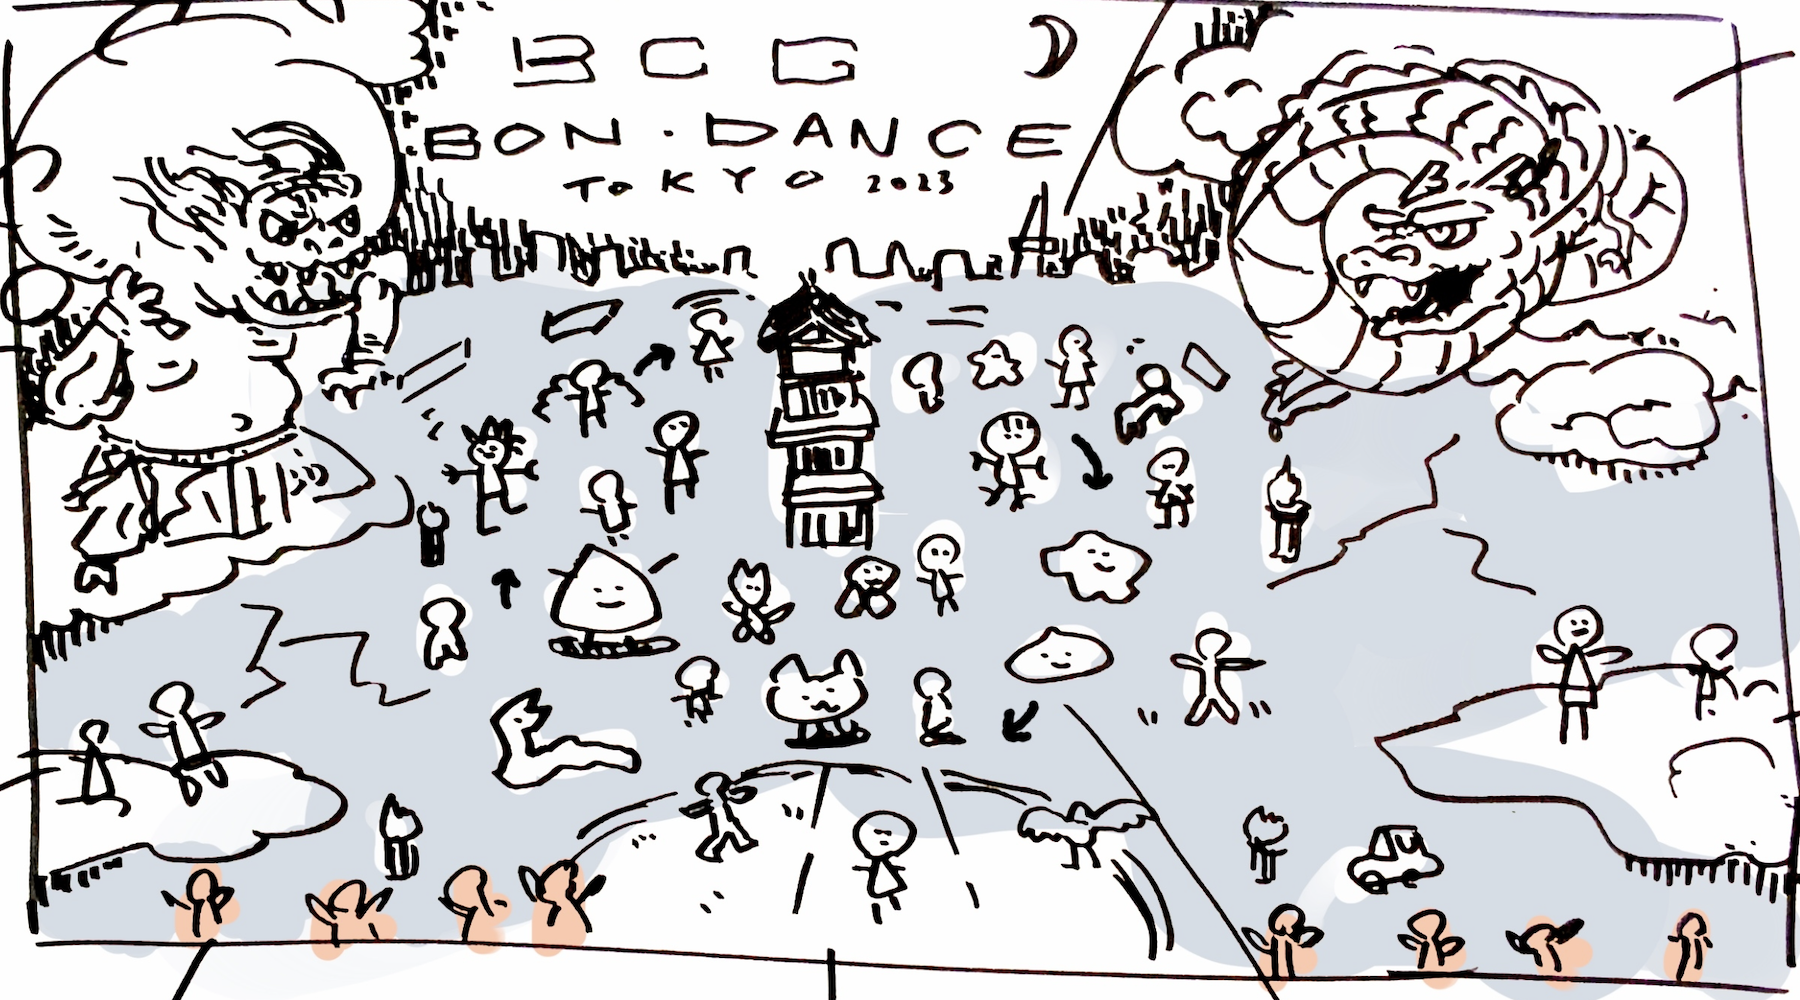 BCG
BON・DANCE
TOKYO 2023